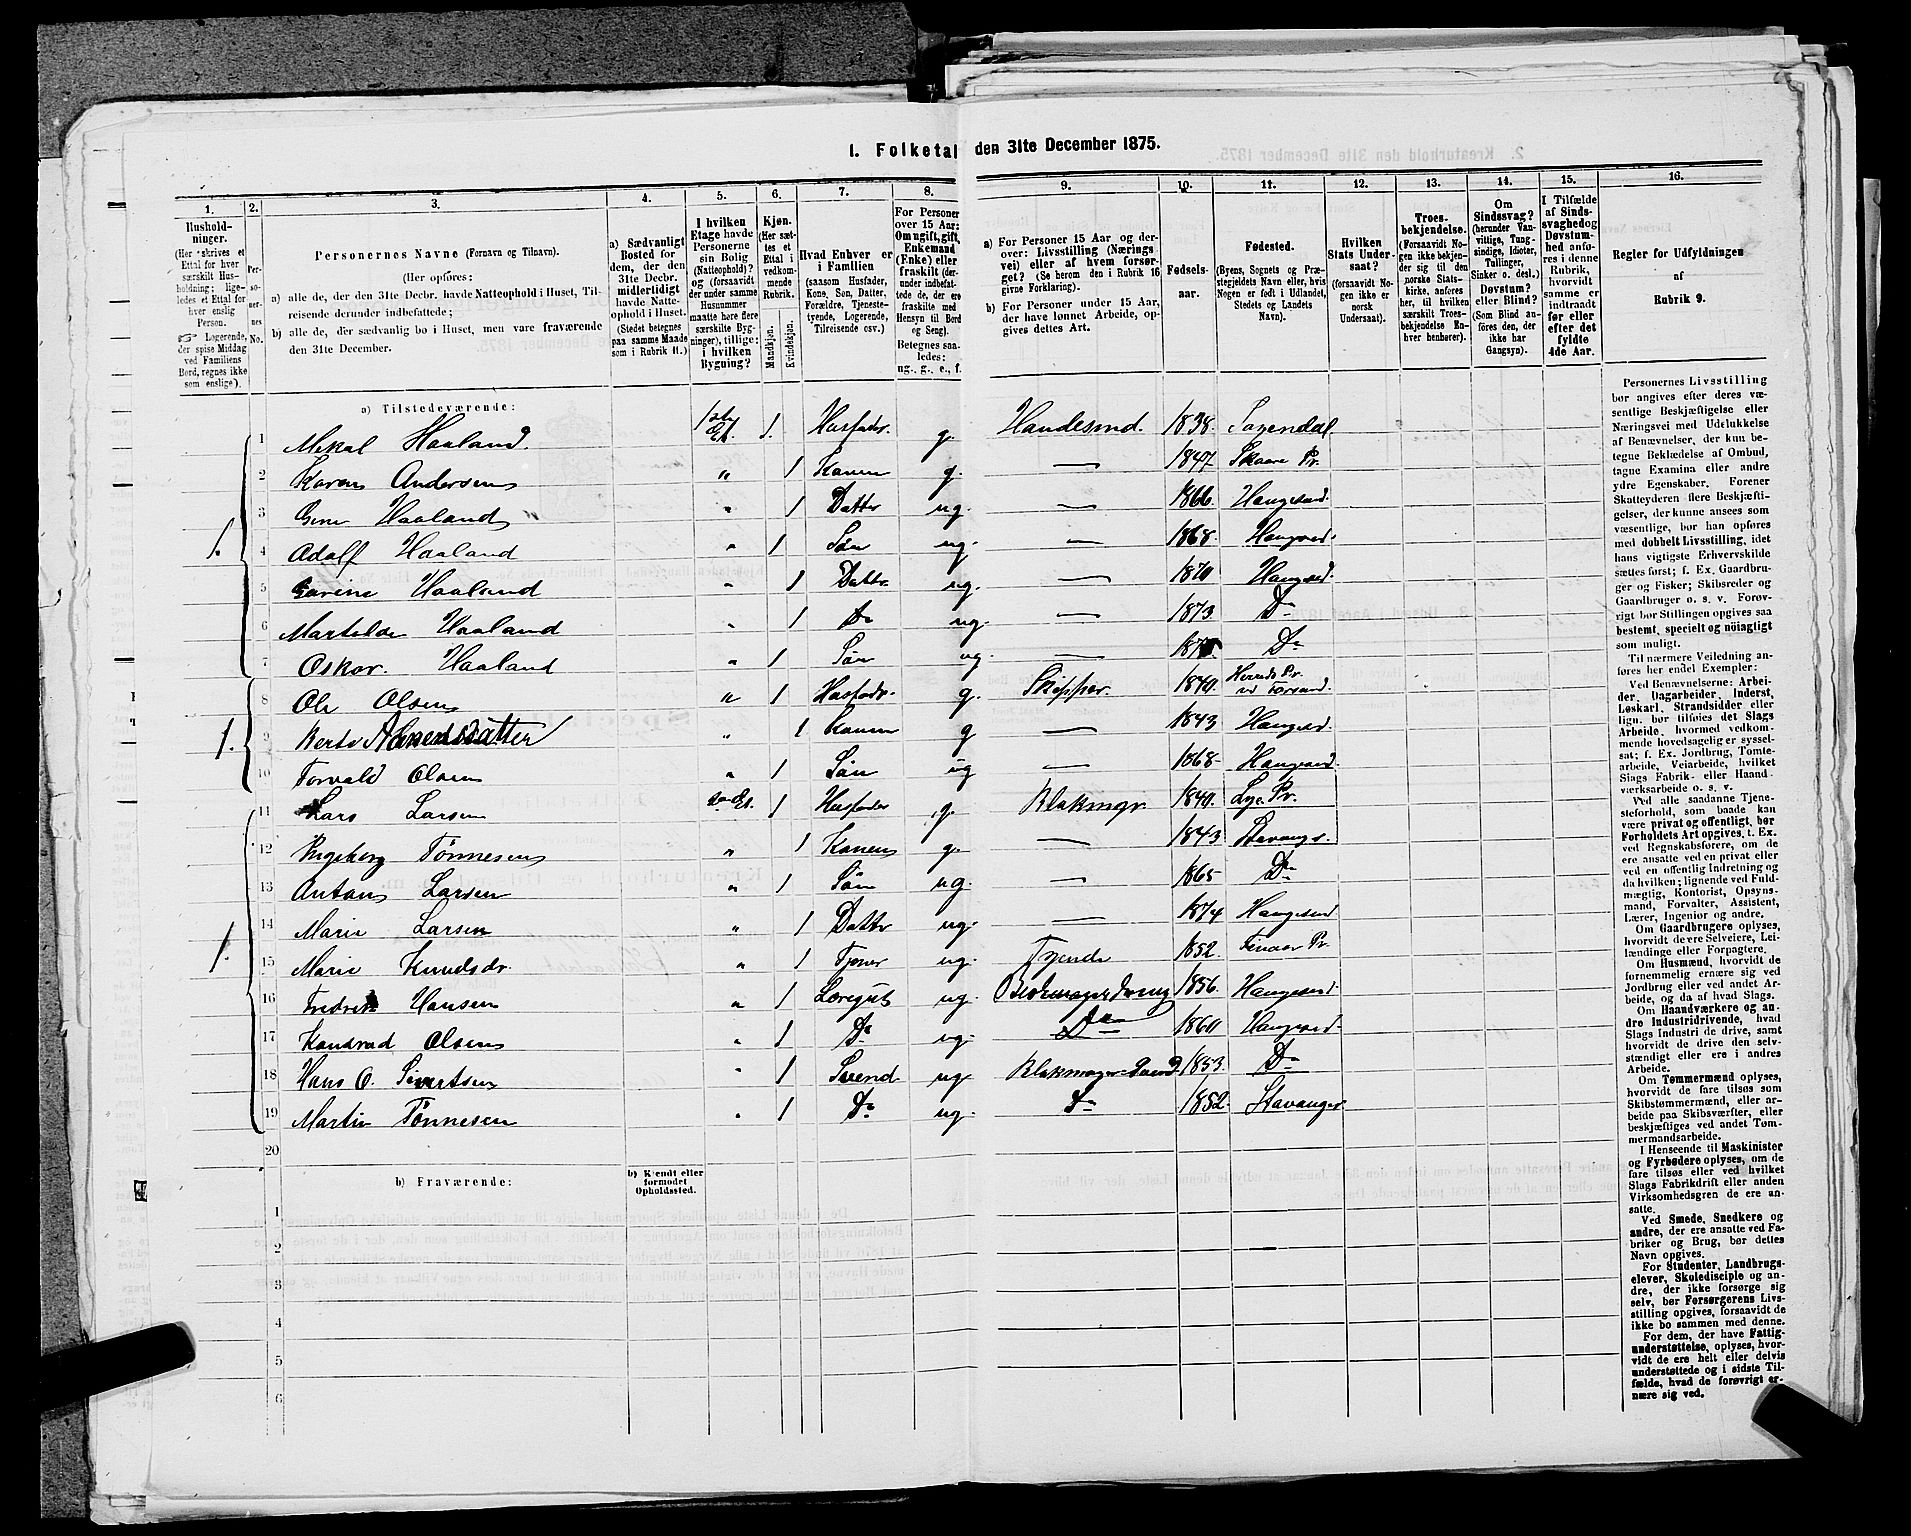 1. Folketal den 31te December 1875.
1. 2. 3. 4. 5. 6. 7. 8. 9. 10. 11. 12. 13. 14. 15. 16.
Husholdninger.
(Her skrives et Ettal for hver særskilt Husholdning; ligeledes et Ettal for hver enslig Person.
Logerende, der spise Middag ved Familiens Bord, regnes ikke som enslige).
Personernes No.
Personernes Navne (Fornavn og Tilnavn).
(Her opføres:
a) alle de, der den 31te Decbr. havde Natteophold i Huset, Tilreisende derunder indbefattede;
b) alle de, der sædvanlig bo i Huset, men vare fraværende den 31te December.
a) Sædvanligt Bosted for dem, der den 31te Decbr. midlertidigt havde Natteophold i Huset. (Stedet betegnes paa samme Maade som i Rubrik 11.)
I hvilken Etage havde Personerne sin Bolig (Natteophold)? og (forsaavidt der under samme Husnummer maatte høre flere særskilte Bygninger), tillige: i hvilken Bygning?
Kjøn. (Her sættes et Ettal i vedkommende Rubrik.
Mandkjøn. Kvindekjøn.
Hvad Enhver er i Familien (saasom Husfader, Kone, Søn, Datter, Forældre, Tjenestetyende, Logerende, Tilreisende osv.)
For Personer over 15 Aar: Om ugift, gift, Enkemand (Enke) eller fraskilt (derunder indbefattede de, der ere fraskilte med Hensyn til Bord og Seng). Betegnes saaledes: ug., g., e., f.
a) For Personer 15 Aar og derover: Livsstilling (Næringsvei) eller af hvem forsørget? (Se herom den i Rubrik 16 givne Forklaring.)
b) For Personer under 15 Aar, der have lønnet Arbeide, opgives dettes Art.
Fødselsaar.
Fødested.
(Byens, Sognets og Præstegjeldets Navn eller, hvis Nogen er født i Udlandet, Stedets og Landets Navn).
Hvilken Stats Undersaat? (forsaavidt Nogen ikke er norsk Undersaat).
Troesbekjendelse. (Forsaavidt Nogen ikke bekjender sig til den norske Statskirke, anføres her, til hvilken særskilt Troesbekjendelse Enhver henhører).
Om Sindssvag? (herunder Vanvittige, Tungsindige, Idioter, Tullinger, Sinker o. desl.) Døvstum? eller Blind? (Som Blind anføres den, der ikke har Gangsyn).
I Tilfælde af Sindssvaghed og Døvstumhed anføres i denne Rubrik, hvorvidt samme er indtraadt før eller efter det fyldte 4de Aar.
Regler for Udfyldningen af Rubrik 9.
a) Tilstedeværende:
1 Mekal Haaland. 1ste Et. 1. Husfadr. g. Handesmd. 1838. Sogendal.
2 Karen Andersen " 1 Konen g. — 1847. Skaare Pr.
3 Gine Haaland " 1 Datter ug. — 1866. Haugesund.
1. 4 Adolf Haaland " 1 Søn ug. — 1868. Haugesund.
5 Gurine Haaland " 1 Dattr ug. — 1870 Haugesd.
6 Martilde Haaland " 1 Do ug. — 1873. Do
7 Oskar. Haaland " 1 Søn ug. — Do
8 Ole Olsen " 1 Husfadr. g. Skipper. 1840.
1. 9 " 1 Konen g — 1843 Haugesd.
10 Torvald Olsen " 1 Søn ug — 1868- Haugesund
11 Lars Larsen 2. Et. 1 Husfader g. Blokmgr. 1840. Lye Pr.
12 Ingeborg Tønnesen " 1 Konen g. — 1843 Stavangr.
13 Anton Larsen " 1 Søn ug. — 1865 Do
14 Marie Larsen " 1 Dattr ug. — 1874 Haugesund
1. 15 Marie Knudsdr. " 1 Tjener ug. Tjende 1852. Pr.
16 Fredrik Hansen " 1 Læregut ug. 1856. Haugesund.
17 Kondrad Olsen " 1 Do ug. Do 1860 Haugesund
18 Hans O. Sivertsen " 1 Svend ug 1853. Do
19 Martin Tønnesen " 1 Do ug. Do 1852. Stavanger.
20
b) Fraværende:
b) Kjendt eller formodet Opholdssted.
1
2
3
4
5
6
Personernes Livsstilling
bør angives efter deres væsentlige
Beskjæftigelse eller
Næringsvei med Udelukkelse
af Benævnelser, der kun betegne
Beklædelse af Ombud,
tagne Examina eller andre
ydre Egenskaber. Forener
Skatteyderen flere Beskjæftigelser,
der kunne ansees som
væsentlige, bør han opføres
med dobbelt Livsstilling, idet
hans vigtigste Erhvervskilde
sættes først; f. Ex. Gaardbruger
og Fisker; Skibsreder og
Gaardbruger o. s. v. Forøvrigt
bør Stillingen opgives saa
bestemt, specielt og nøiagtigt
som muligt.
Til nærmere Veiledning anføres
her endel Exempler:
Ved Benævnelserne: Arbeider,
Dagarbeider, Inderst,
Løskarl, Strandsidder eller
lign. bør tilføies det Slags
Arbeide, hvormed vedkommende
hovedsagelig er sysselsat;
f. Ex. Jordbrug, Tomtearbeide,
Veiarbeide, hvilket
Slags Fabrik- eller Haandværksarbeide
o. s. v.
Ved alle saadanne Tjenesteforhold,
som baade kan
være privat og offentligt, bør
Forholdets Art opgives, f. Ex.
ved Regnskabsførere, om de
ere ansatte ved en privat eller
ved en offentlig Indretning og
da hvilken; lignende ved Fuldmægtig,
Kontorist, Opsynsmand,
Forvalter, Assistent,
Lærer, Ingeniør og andre.
Om Gaardbrugere oplyses,
hvorvidt de ere Selveiere, Leilændinge
eller Forpagtere.
Om Husmænd, hvorvidt de
fornemmelig ernære sig ved
Jordbrug eller ved andet Arbeide,
og da af hvad Slags.
Om Haandværkere og andre
Industridrivende, hvad
Slags Industri de drive, samt
hvorvidt de drive den selvstændigt
eller ere i andres
Arbeide.
Om Tømmermænd oplyses,
hvorvidt de fare tilsøs som
Skibstømmermænd, eller arbeide
paa Skibsværfter, eller
beskjæftiges ved andet Tømmermandsarbeide.
I Henseende til Maskinister
og Fyrbødere oplyses, om de
fare tilsøs eller ved hvilket
Slags Fabrikdrift eller anden
Virksomhedsgren de ere ansatte.
Ved Smede, Snedkere og
andre, der ere ansatte ved Fabriker
og Brug, bør dettes
Navn opgives.
For Studenter, Landbrugselever,
Skoledisciple og andre,
der ikke forsørge sig
selv, bør Forsørgerens Livsstilling
opgives, forsaavidt de
ikke bo sammen med denne.
For dem, der have Fattigunderstøttelse,
oplyses, hvorvidt
de ere helt eller delvis
understøttede og i sidste Tilfælde,
hvad de forøvrigt ernære
sig ved.